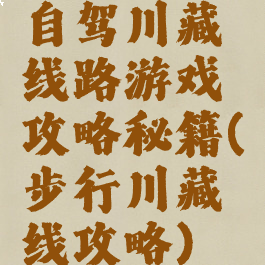 自驾川藏
线路游戏
攻略秘籍(
步行川藏
线攻略)